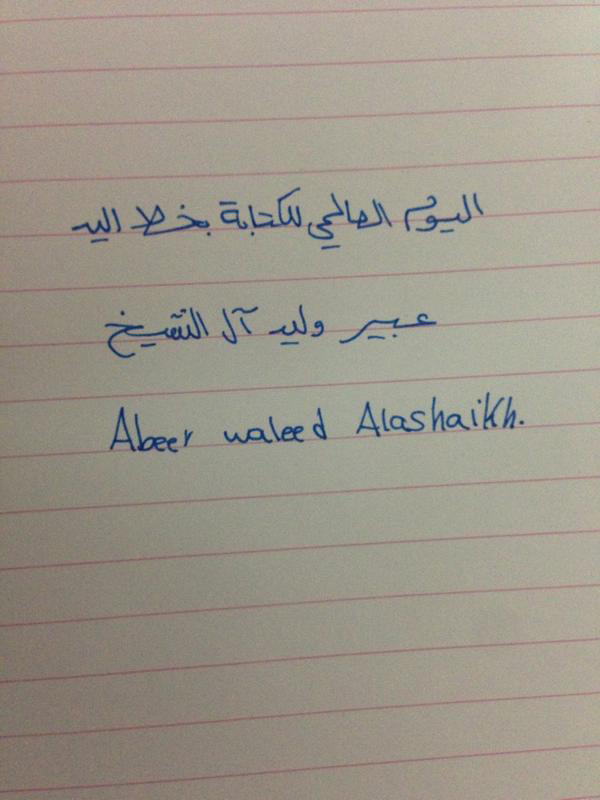 اليوم العالمي للكتابة بخط اليد
عبير وليد آل الشيخ
Abeer waleed Alashaikh.